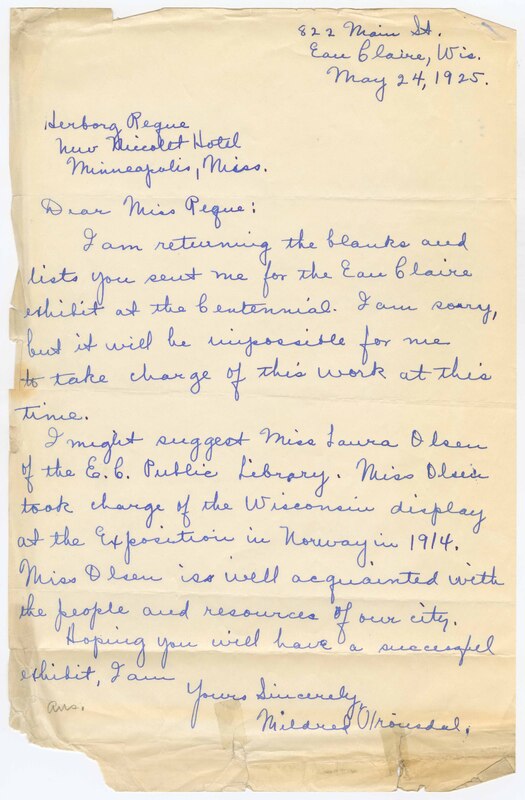 822 Main St.
Eau Claire, Wis.
May 24, 1925.
Herborg Reque
New Niccolet Hotel
Minneapolis, Minn.
Dear Miss Reque:
I am returning the blanks and
lists you sent me for the Eau Claire
exhibit at the Centennial. I am sorry,
but it will be impossible for me
to take charge of this work at this
time.
I might suggest Miss Laura Olsen
of the E.C. Public Library. Miss Olsen
took charge of the Wisconsin display
at the Exposition in Norway in 1914.
Miss Olsen is well acquainted with
the people and resources of our city.
Hoping you will have a successful
exhibit, I am
Yours Sincerely,
Mildred
ans.